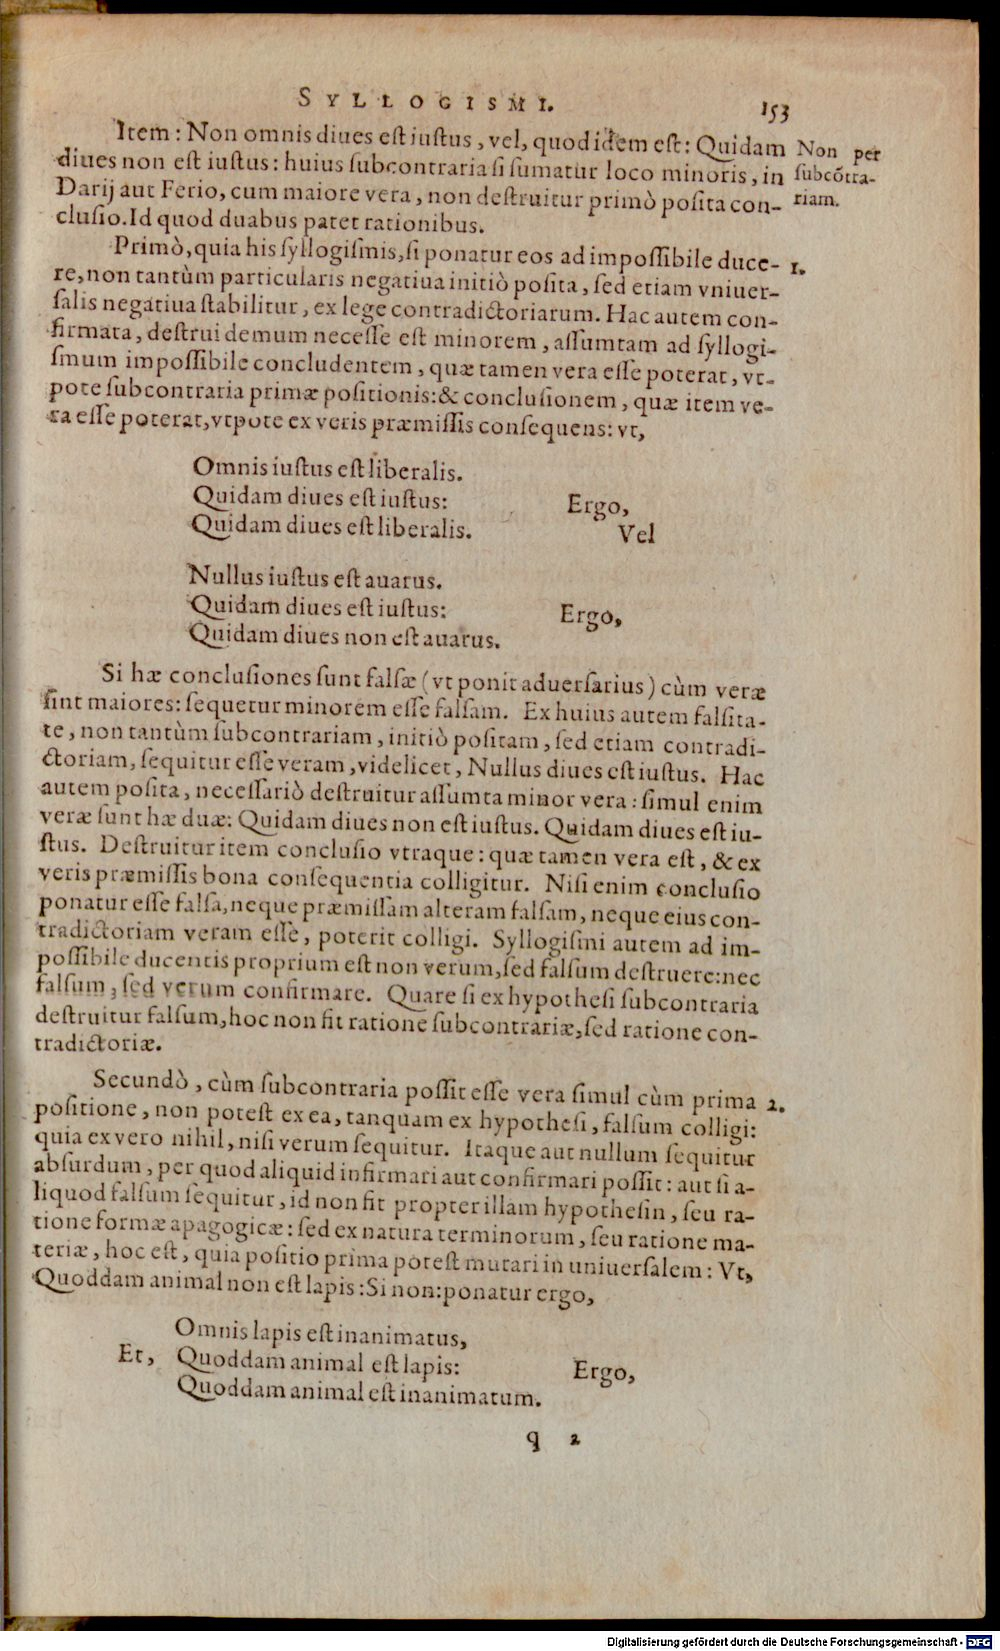 SYLLOGISMI. 153
Item: Non omnis diues est iustus, vel, quod idem est: Quidam
diues non est iustus: huius subcontraria si sumatur loco minoris, in
Darij aut Ferio, cum maiore vera, non destruitur primò posita con-
clusio. Id quod duabus patet rationibus.
Non per
subcōtra-
riam.
Primò, quia his syllogismis, si ponatur eos ad impossibile duce-
re, non tantùm particularis negatiua initiò posita, sed etiam vniuer-
salis negatiua stabilitur, ex lege contradictoriarum. Hac autem con-
firmata, destrui demum necesse est minorem, assumtam ad syllogi-
smum impossibile concludentem, quæ tamen vera esse poterat, vt-
pote subcontraria primæ positionis: & conclusionem, quæ item ve-
ra esse poterat, vtpote ex veris præmissis consequens: vt,
1.
Omnis iustus est liberalis.
Quidam diues est iustus: Ergo,
Quidam diues est liberalis. Vel
Nullus iustus est auarus.
Quidam diues est iustus: Ergo,
Quidam diues non est auarus.
Si hæ conclusiones sunt falsæ (vt ponit aduersarius) cùm veræ
sint maiores: sequetur minorem esse falsam. Ex huius autem falsita-
te, non tantùm subcontrariam, initiò positam, sed etiam contradi-
ctoriam, sequitur esse veram, videlicet, Nullus diues est iustus. Hac
autem posita, necessariò destruitur assumta minor vera: simul enim
veræ sunt hæ duæ: Quidam diues non est iustus. Quidam diues est iu-
stus. Destruitur item conclusio vtraque: quæ tamen vera est, & ex
veris præmissis bona consequentia colligitur. Nisi enim conclusio
ponatur esse falsa, neque præmissam alteram falsam, neque eius con-
tradictoriam veram esse, poterit colligi. Syllogismi autem ad im-
possibile ducentis proprium est non verum, sed falsum destruere: nec
falsum, sed verum confirmare. Quare si ex hypothesi subcontraria
destruitur falsum, hoc non fit ratione subcontrariæ, sed ratione con-
tradictoriæ.
Secundò, cùm subcontraria possit esse vera simul cùm prima
positione, non potest ex ea, tanquam ex hypothesi, falsum colligi:
quia ex vero nihil, nisi verum sequitur. Itaque aut nullum sequitur
absurdum, per quod aliquid infirmari aut confirmari possit: aut si a-
liquod falsum sequitur, id non fit propter illam hypothesin, seu ra-
tione formæ apagogicæ: sed ex natura terminorum, seu ratione ma-
teriæ, hoc est, quia positio prima potest mutari in uniuersalem: Vt,
Quoddam animal non est lapis: Si non: ponatur ergo,
2.
Omnis lapis est inanimatus,
Et, Quoddam animal est lapis: Ergo,
Quoddam animal est inanimatum.
q 2
Digitalisierung gefördert durch die Deutsche Forschungsgemeinschaft - DFG